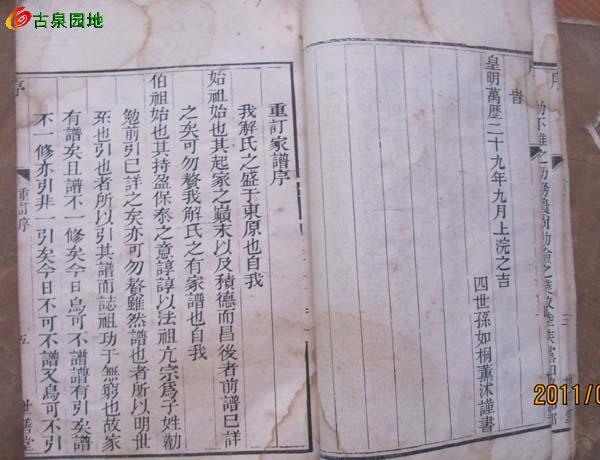 古泉园地
旹
皇明萬歷二十九年九月上浣之吉
四世孫如桐薰沐謹書
序
重訂家譜序
我解氏之盛于東原也自我
始祖始也其起家之巔末以及積德而昌後者前譜已詳
之矣可勿贅我解氏之有家譜也自我
伯祖始也其持盈保泰之意諄諄以法祖亢宗為子姓勸
勉前引已詳之矣亦可勿贅雖然譜也者所以明世
系也引也者所以引其譜而誌祖功于無窮也故家
有譜矣且譜不一修矣今日烏可不譜譜有引矣譜
不一修亦引非一引矣今日不可不譜又烏可不引
序
重訂序
五
世善堂
2011/0